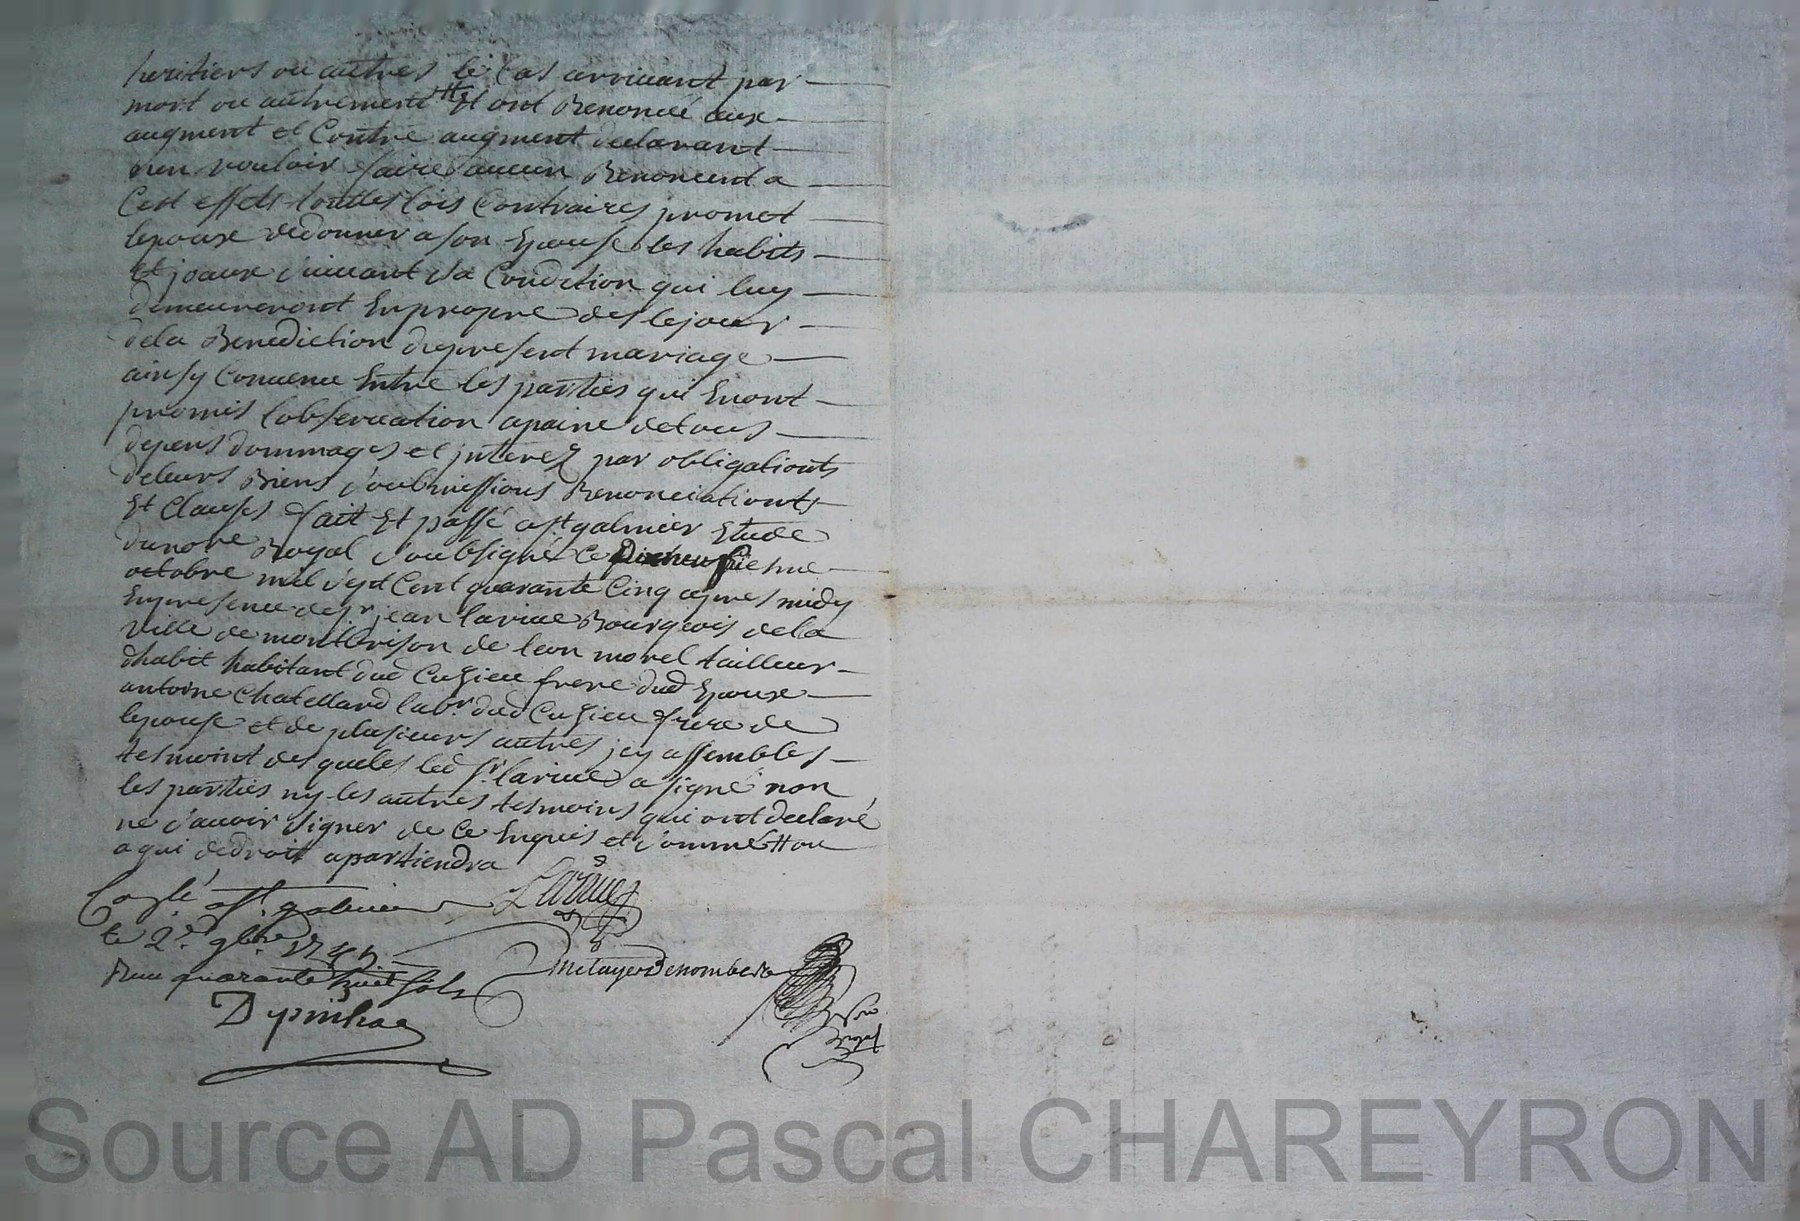 heritiers ou autres le Cas arrivant par
mort ou autrement Et ont Renoncé aux
augment et Contre augment declarant
nen vouloir faire aucun Renoncent a
Cest effets touttes lois Contraires promet
lepoux de donner a son Epouse les habits
et joaux suivant sa Condition qui luy
demeureront En propre des le jour
de la Benediction du present mariage
ainsy Convenu Entre les parties qui En ont
promis lobservation a paine de tous
depens dommages et interez par obligationts
de leurs Biens soubmissions Renonciationts
Et Clauses fait Et passé a st galmier Etude
du nore Royal soubsigné Ce
octobre mil sept Cent quarante Cinq apres midy
En presence de sr jean larive Bourgeois de la
ville de montbrison de leon morel tailleur
dhabit habitant dud Cuzieu frere dud Epoux
antoine Chatellard labr dud Cuzieu frere de
lepouse et de plusieurs autres jcy assembles
tesmoint des queles led sr larive a signé non
les parties ny les autres tesmoins qui ont declaré
ne savoir signer de Ce Enquis et
a qui de droit apartiendra
Larive
Conlé a st galmier
le 2e 9bre 1745
Recu quarante huit sols
Source AD Pascal CHAREYRON